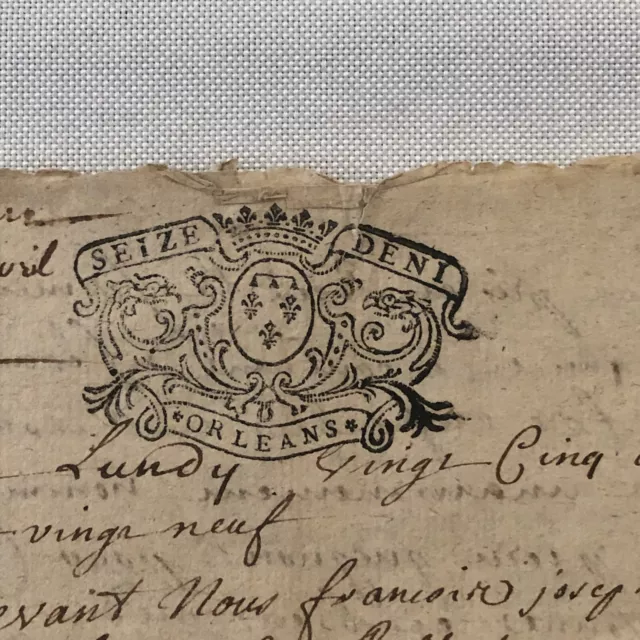 SEIZE DENI
vril
*ORLEANS*
Lundy vingt Cinq
vingt neuf
evant Nous françois josep